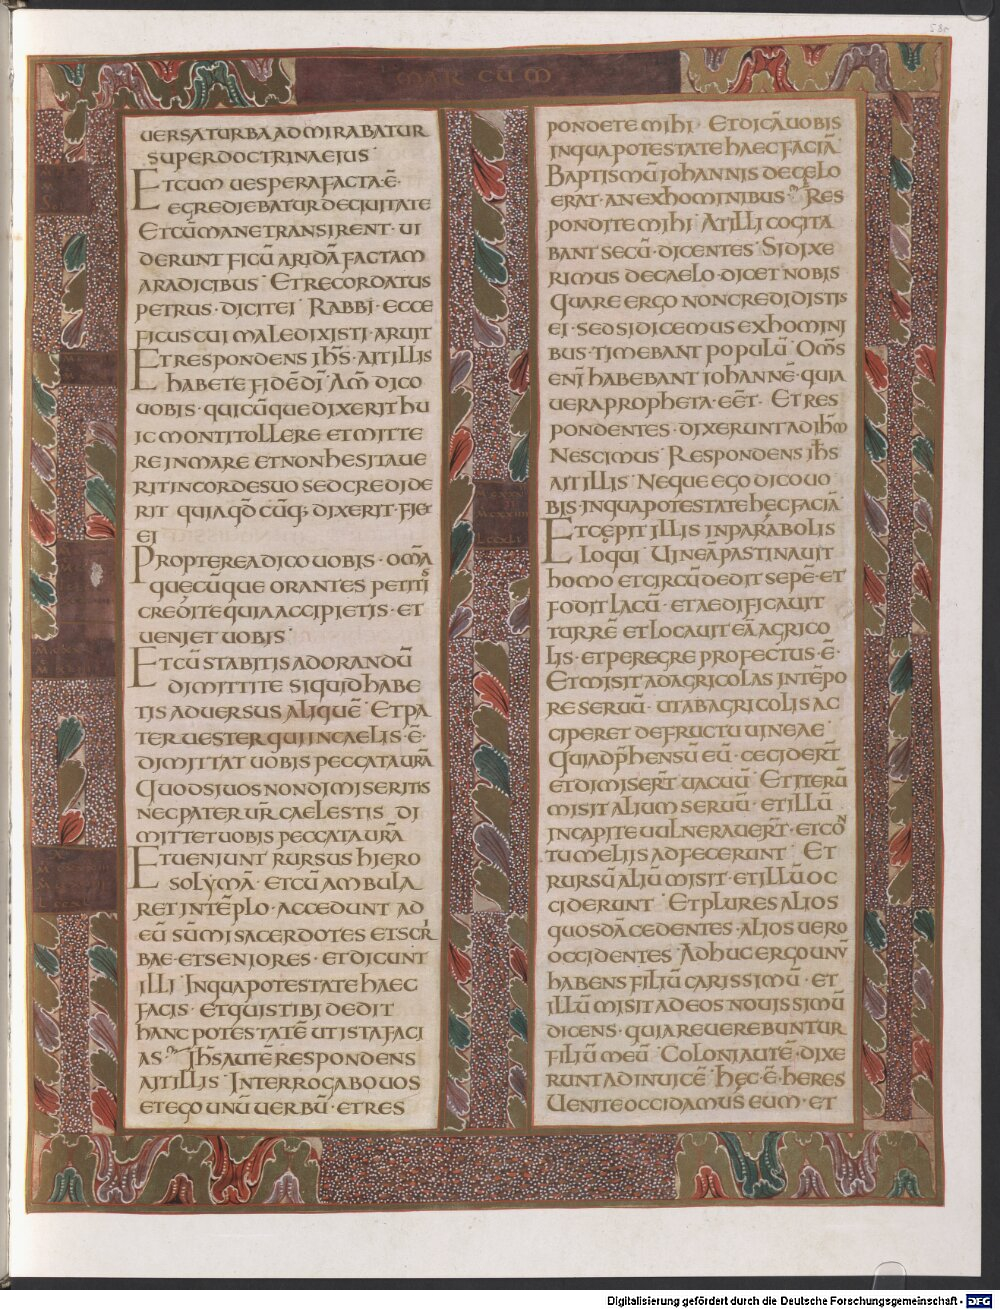 58r
MARCUM
UERSATURBAADMIRABATUR
SUPERDOCTRINAEIUS
ETCUM UESPERAFACTA·Ē·
EGREDIEBATURDECIUITATE
ETCŪMANETRANSIRENT· UI
DERUNT FICŪ ARIDĀ FACTAM
ARADICIBUS· ETRECORDATUS
PETRUS· DICITEI· RABBI· ECCE
FICUSCUI MALEDIXISTI·ARUIT
ETRESPONDENS IHS̄·AITILLIS
HABETE FIDĒDĪ· AM̄ DICO
UOBIS· QUICŪQUEDIXERITHU
IC MONTITOLLERE ETMITTE
REINMARE ETNONHESITAUE
RITINCORDESUO SEDCREDIDE
RIT QUIAQD̄ CŪQ; DIXERIT· FIET
EI·
PROPTEREADICOUOBIS· OMĀ
QUECŪQUE ORANTES PETITIS
CREDITEQUIAACCIPIETIS· ET
UENIET UOBIS·
ETCŪ STABITISADORANDŪ
DIMITTITE SIQUIDHABE
TIS ADUERSUS ALIQUĒ· ETPA
TERUESTERQUIINCAELIS·Ē·
DIMITTAT UOBIS PECCATAURĀ
QUODSIUOSNONDIMISERITIS
NECPATER UR̄ CAELESTIS· DI
MITTETUOBIS PECCATAURĀ
ETUENIUNT RURSUS HIERO
SOLYMĀ· ETCŪ AMBULA
RETINTĒPLO· ACCEDUNT AD
EŪ SŪMISACERDOTES ETSCRI
BAE· ETSENIORES· ETDICUNT
ILLI· INQUAPOTESTATEHAEC
FACIS· ETQUISTIBI DEDIT
HANC POTESTATĒ UTISTAFACI
AS· IHS̄AUTĒRESPONDENS
AITILLIS· INTERROGABOUOS
ETEGO UNŪ UERBŪ· ETRES
PONDETEMIHI· ETDICĀUOBIS
INQUAPOTESTATEHAECFACIĀ
BAPTISMŪ IOHANNIS DECĘLO
ERAT· ANEXHOMINIBUS· RES
PONDITEMIHI· ATILLI COGITA
BANT SECŪ· DICENTES· SIDIXE
RIMUS DECAELO· DICET NOBIS
QUARE ERGO NONCREDIDISTIS
EI· SEDSIDICEMUS EXHOMINI
BUS· TIMEBANT POPULŪ· OMS̄
ENĪ HABEBANT IOHANNĒ· QUIA
UERAPROPHETA·EĒT· ETRES
PONDENTES· DIXERUNTADIHM̄
NESCIMUS· RESPONDENS IHS̄
AITILLIS· NEQUE EGO DICOUO
BIS· INQUAPOTESTATE HĘCFACIĀ
ETCĘPIT ILLIS INPARABOLIS
LOQUI· UINEĀPASTINAUIT
HOMO ETCIRCŪDEDIT SEPĒ· ET
FODIT LACŪ· ETAEDIFICAUIT
TURRĒ ETLOCAUIT EĀ AGRICO
LIS· ETPEREGRE PROFECTUS·Ē·
ETMISIT ADAGRICOLAS INTĒPO
RE SERUŪ· UTABAGRICOLIS AC
CIPERET DEFRUCTU UINEAE·
QUIADP̄HENSŪ EŪ· CECIDERT̄
ETDIMISERT̄ UACUŪ· ETITERŪ
MISIT ALIUM SERUŪ· ETILLŪ
INCAPITEUULNERAUERT̄· ETCON
TUMELIIS ADFECERUNT· ET
RURSŪ ALIŪ MISIT· ETILLŪ OC
CIDERUNT· ETPLURES ALIOS
QUOSDĀ CEDENTES· ALIOS UERO
OCCIDENTES· ADHUC ERGOUNŪ
HABENS FILIŪ CARISSIMŪ· ET
ILLŪ MISIT ADEOS NOUISSIMŪ
DICENS· QUIAREUEREBUNTUR
FILIŪ MEŪ· COLONIAUTĒ· DIXE
RUNTADINUICĒ· HĘC·Ē·HERES
UENITEOCCIDAMUS EUM· ET
Digitalisierung gefördert durch die Deutsche Forschungsgemeinschaft - DFG